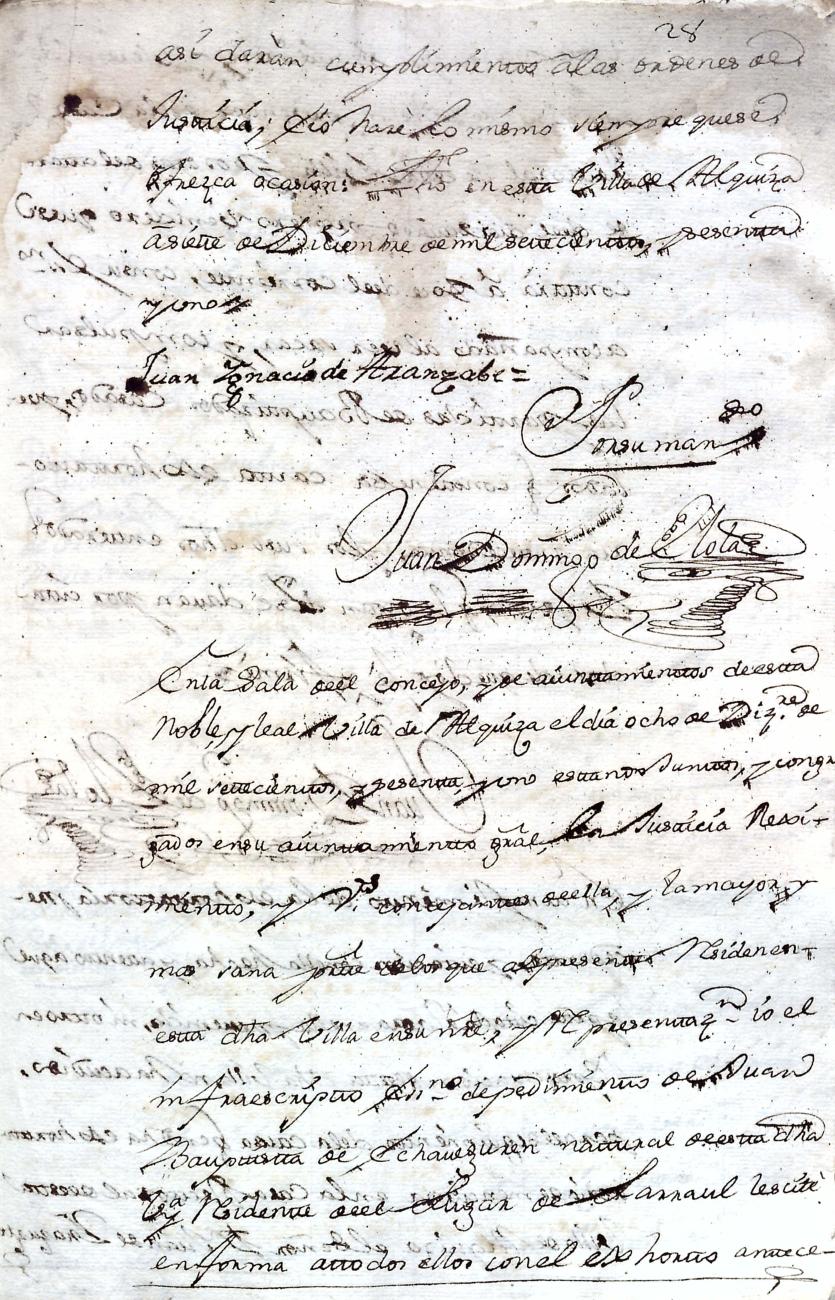 28
así darán cumplimientto a las ordenes de
Justicia; è io harè lo mismo siempre que se
ofrezca ocasion: en estta Villa de Alquiza
a siette de Diciembre de mil settecienttos, y sesentta
y uno
Juan Ignacio de Aranzabe=
Por su mando
Juan Domingo de
En la Sala de el concejo, y de aiunttamienttos de estta
Noble, y leal Villa de Alquiza el dia ocho de Diz.re de
mil settecienttos, y sesentta, y uno estando Junttos, y congre
gados en su aiunttamientto gral, la Justicia Rexi-
mientto, y V.s concejanttes de ella, y la mayor, y
mas sana partte de los que al presentte Residen en
estta dha Villa en su nre, y Representtaz.n io el
infraescriptto Ess.no de pedimientto de Juan
Bauptistta de Echaveguren nattural de estta dha
V.a Residentte de el Lugar de Larraul les citè
en forma a ttodos ellos con el exhortto antece-